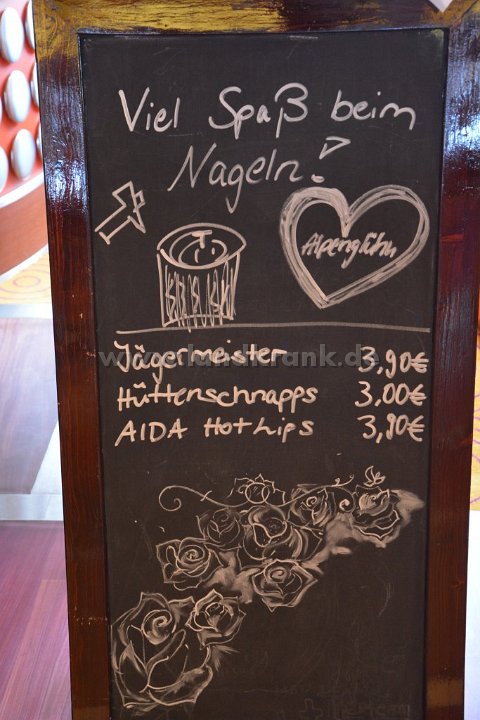 Viel Spaß beim
Nageln!
Alpenglühn
Jägermeister 3,90€
Hüttenschnapps 3,00€
AIDA Hot Lips 3,90€